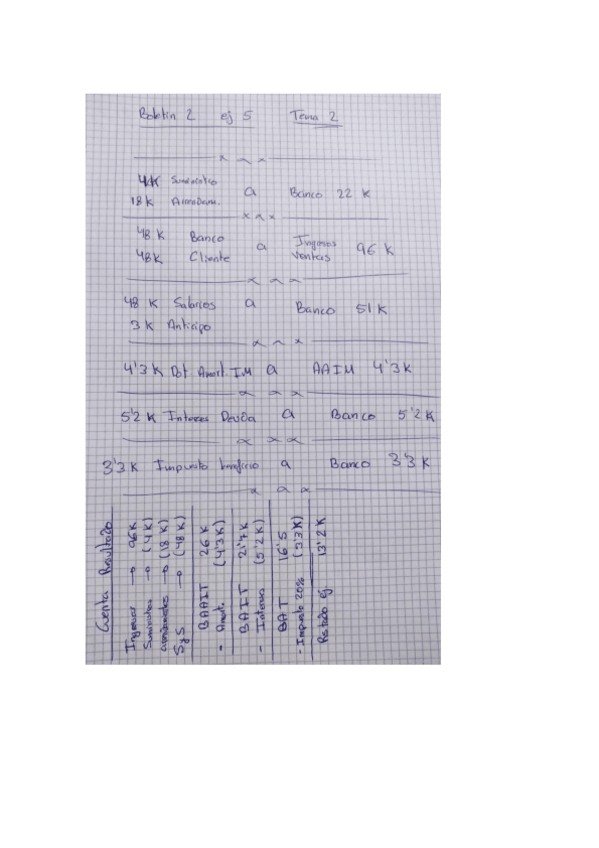 Boletín 2 ej 5 Tema 2
4K Suministro a Banco 22 K
18 K Arrendam.
48 K Banco a Ingresos ventas 96 K
48K Cliente
48 K Salarios a Banco 51 K
3 K Anticipo
4'3 K Dot Amort. IM a AAIM 4'3K
5'2 K Intereses Deuda a Banco 5'2 K
3'3 K Impuesto beneficio a Banco 3'3 K
Cuenta Resultado
Ingresos → 96K
Suministros → (4K)
arrendamientos → (18 K)
SyS → (48 K)
BAAIT 26 K
- Amort. (4'3K)
BAIT 21'7 K
- Intereses (5'2K)
BAT 16'5
- Impuesto 20% (3'3 K)
Rstado ej 13'2 K